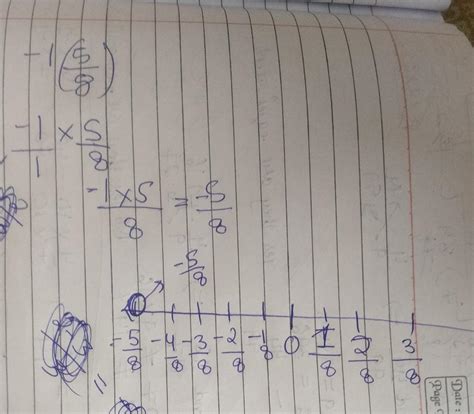 -1(5/8)
-1/1 × 5/8
-1×5/8 = -5/8
-5/8
-5/8 -4/8 -3/8 -2/8 -1/8 0 1/8 2/8 3/8
=
Date :
Page